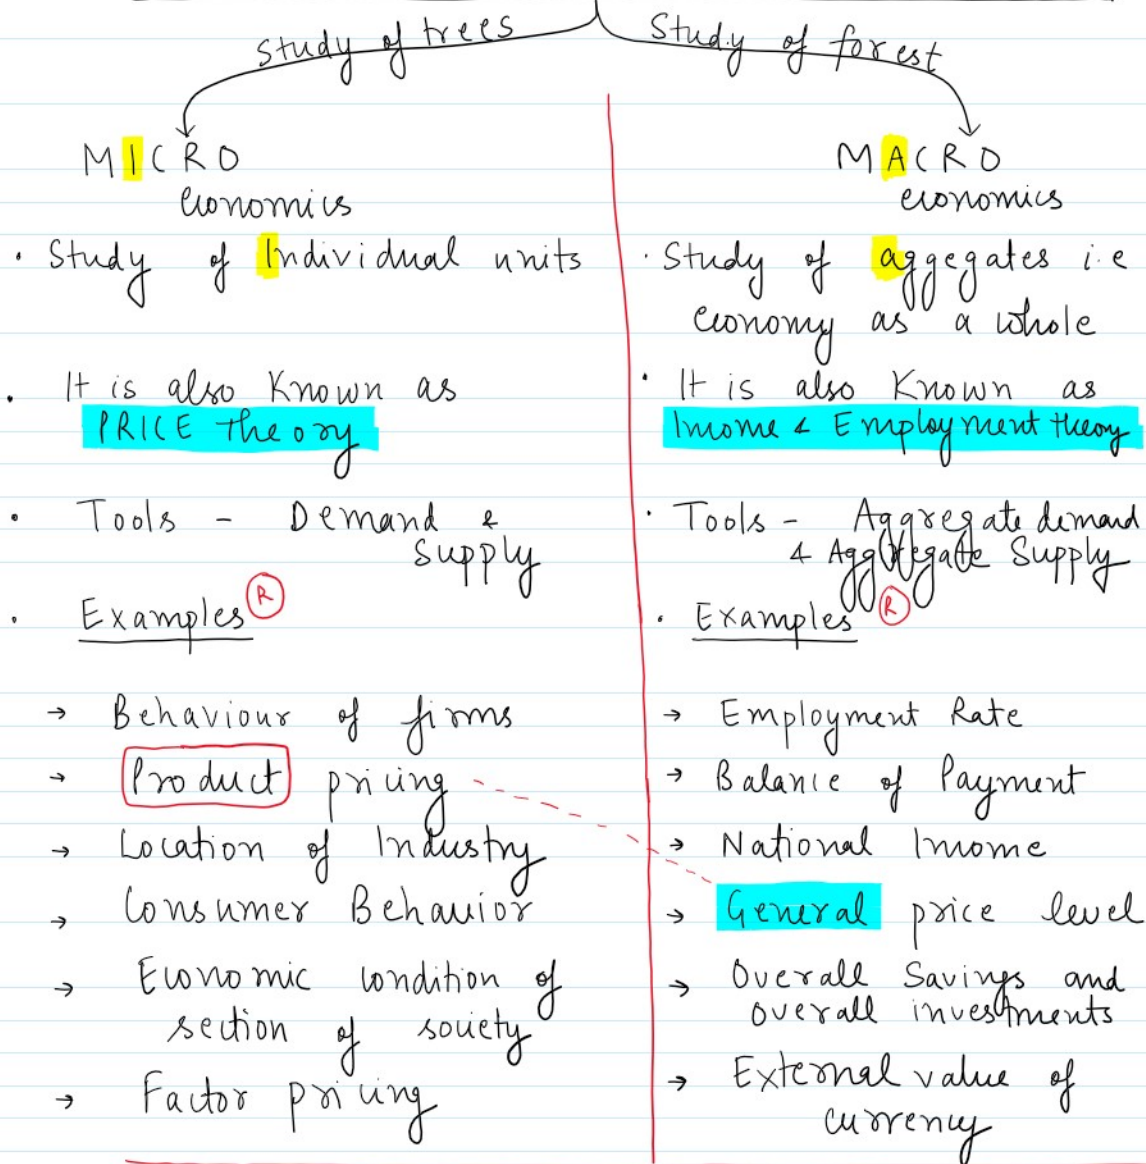 Study of trees
Study of forest
MICRO
economics
• Study of Individual units
• It is also Known as
PRICE Theory
• Tools - Demand &
Supply
• Examples Ⓡ
→ Behaviour of firms
→ Product pricing
→ Location of Industry
→ Consumer Behavior
→ Economic condition of
section of society
→ Factor pricing
MACRO
economics
• Study of aggegates i.e
economy as a whole
• It is also Known as
Income & Employment theory
• Tools - Aggregate demand
& Aggregate Supply
• Examples Ⓡ
→ Employment Rate
→ Balance of Payment
→ National Income
→ General price level
→ Overall Savings and
overall investments
→ External value of
currency